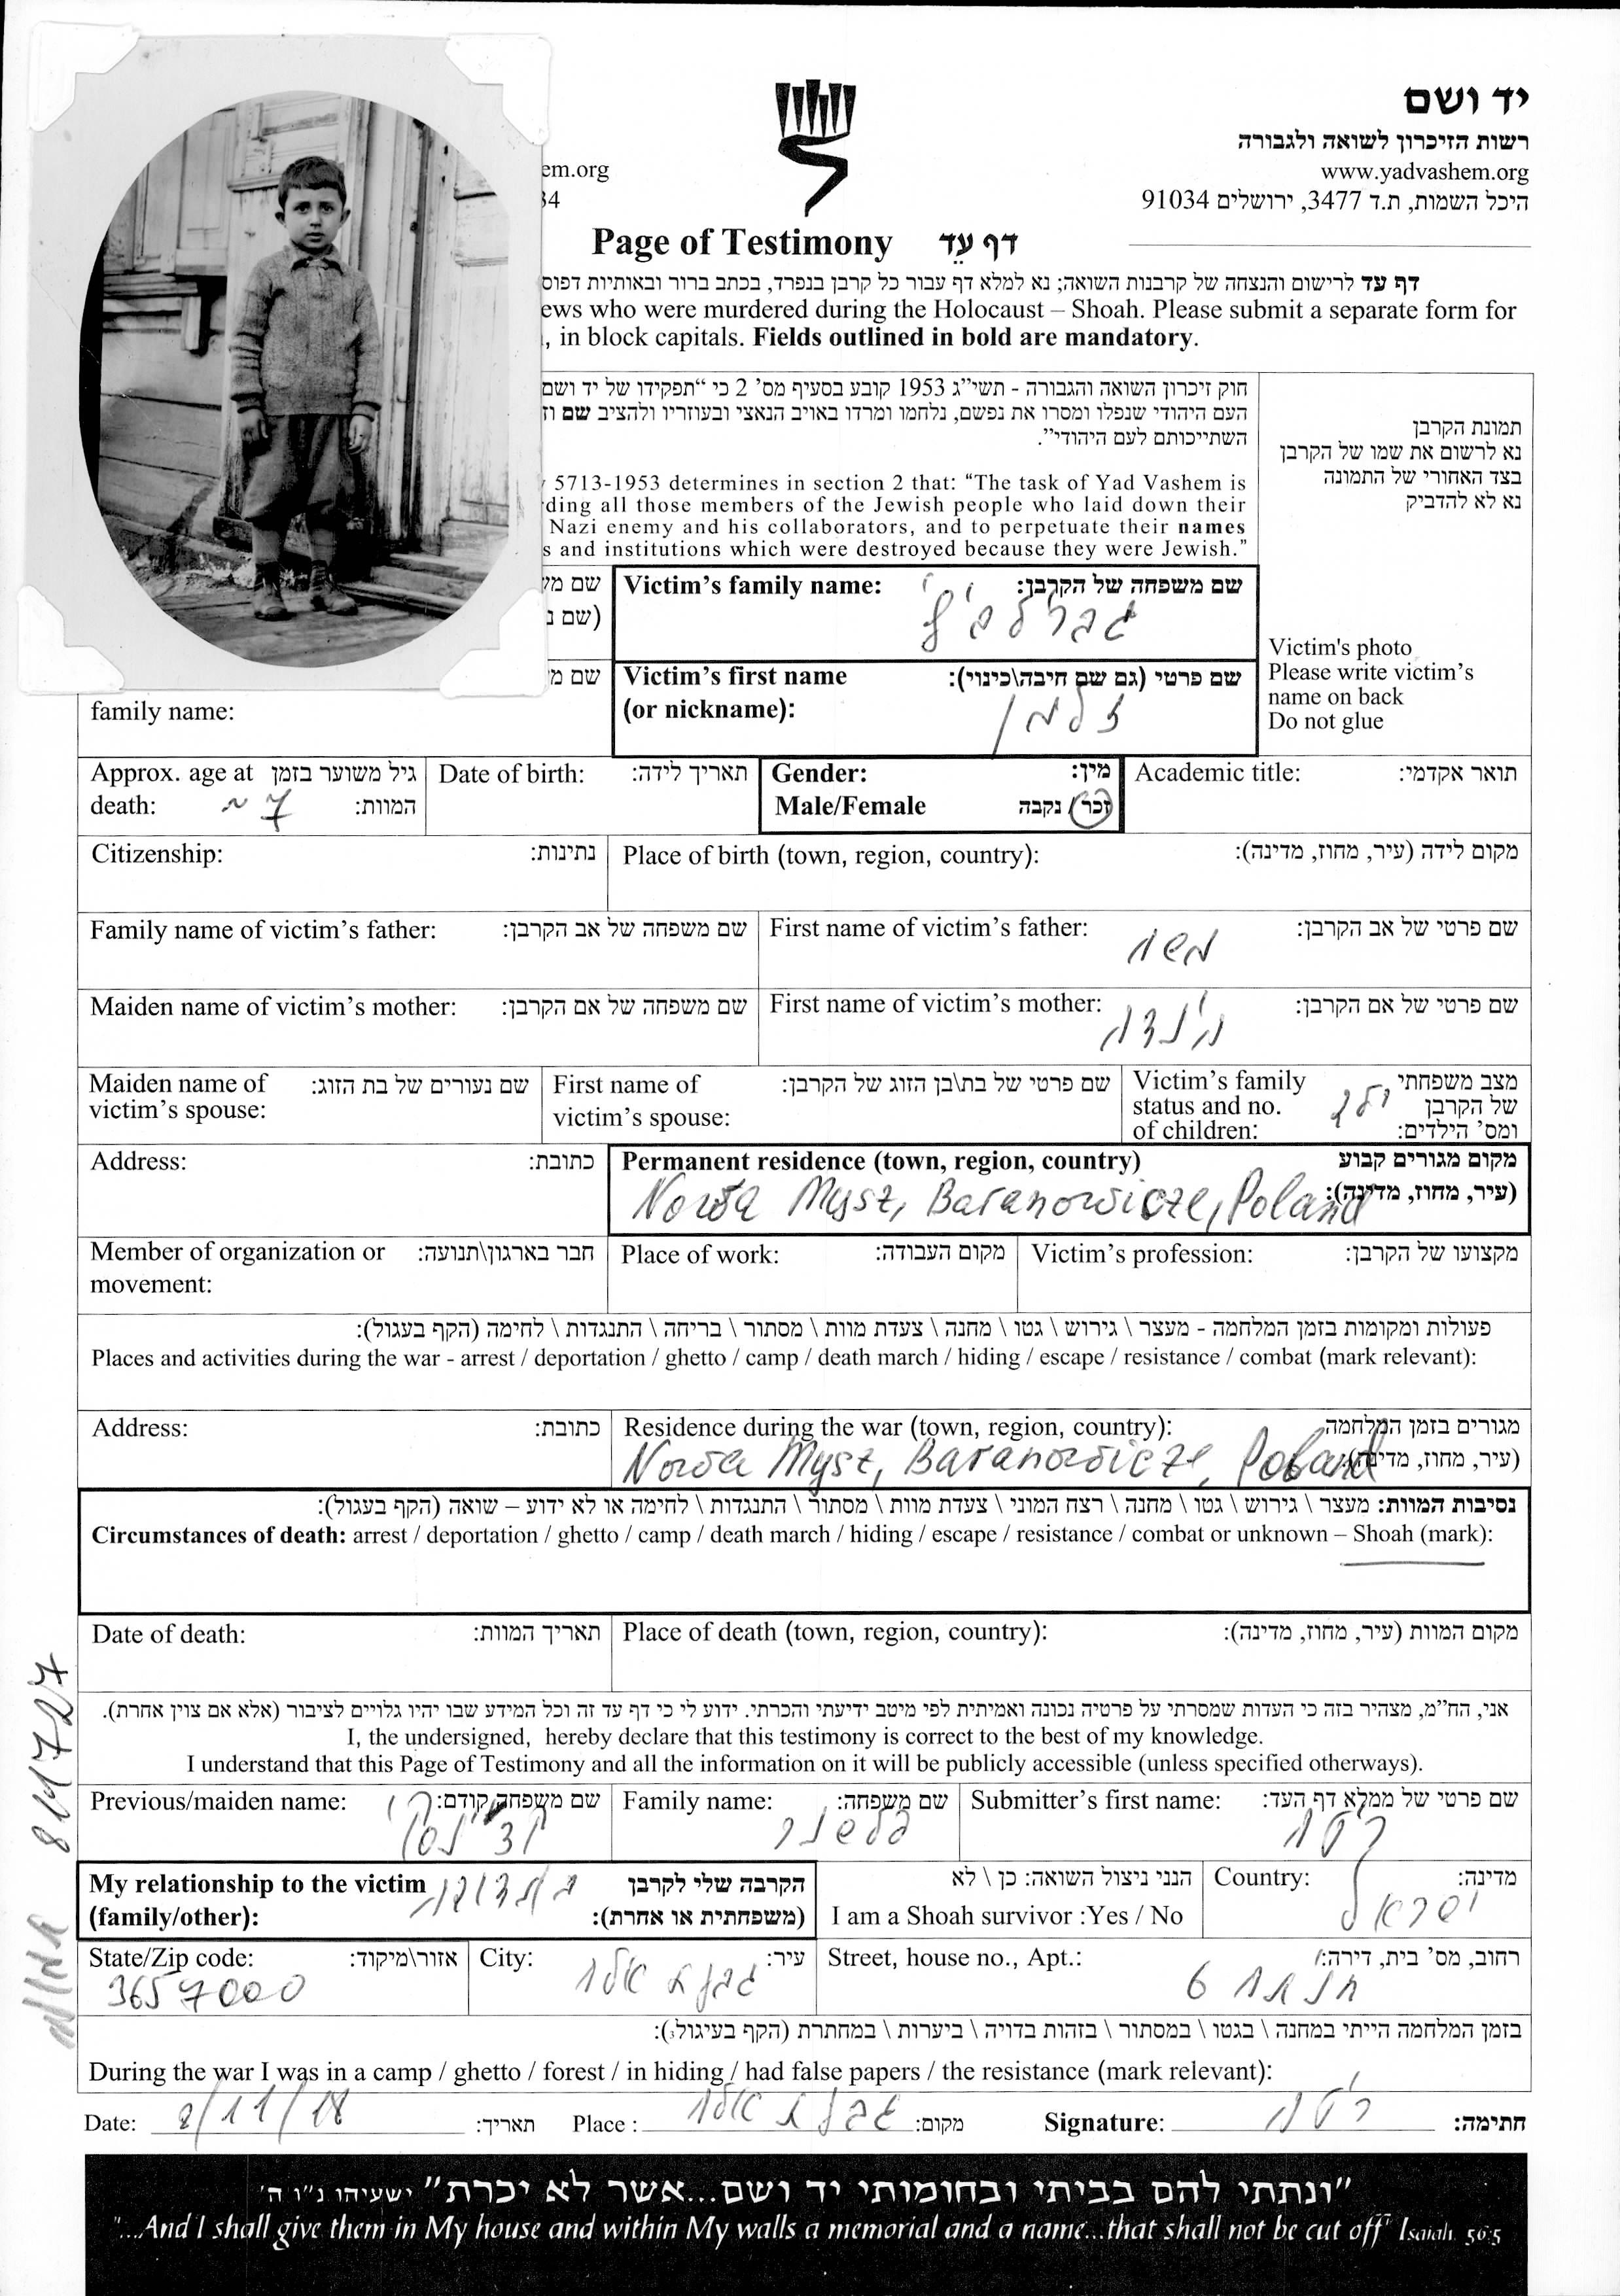 יד ושם
רשות הזיכרון לשואה ולגבורה
www.yadvashem.org
היכל השמות, ת.ד 3477, ירושלים 91034
em.org
34
Page of Testimony דף עֵד
דף עד לרישום והנצחה של קרבנות השואה; נא למלא דף עבור כל קרבן בנפרד, בכתב ברור ובאותיות דפוס
ews who were murdered during the Holocaust – Shoah. Please submit a separate form for
, in block capitals. Fields outlined in bold are mandatory.
חוק זיכרון השואה והגבורה - תשי״ג 1953 קובע בסעיף מס' 2 כי “תפקידו של יד ושם
העם היהודי שנפלו ומסרו את נפשם, נלחמו ומרדו באויב הנאצי ובעוזריו ולהציב שם וז
השתייכותם לעם היהודי”.
5713-1953 determines in section 2 that: “The task of Yad Vashem is
ding all those members of the Jewish people who laid down their
Nazi enemy and his collaborators, and to perpetuate their names
s and institutions which were destroyed because they were Jewish.”
תמונת הקרבן
נא לרשום את שמו של הקרבן
בצד האחורי של התמונה
נא לא להדביק
Victim's photo
Please write victim's
name on back
Do not glue
Victim's family name: שם משפחה של הקרבן:
שם מש
(שם נ
Victim's first name שם פרטי (גם שם חיבה\כינוי):
(or nickname): זלמן
שם מ
family name:
Approx. age at גיל משוער בזמן
death: ~ 7 המוות:
Date of birth: תאריך לידה:
Gender: מין:
Male/Female זכר / נקבה
Academic title: תואר אקדמי:
Citizenship: נתינות:
Place of birth (town, region, country): מקום לידה (עיר, מחוז, מדינה):
Family name of victim's father: שם משפחה של אב הקרבן:
First name of victim's father: שם פרטי של אב הקרבן:
משה
Maiden name of victim's mother: שם משפחה של אם הקרבן:
First name of victim's mother: שם פרטי של אם הקרבן:
הינדה
Maiden name of שם נעורים של בת הזוג:
victim's spouse:
First name of שם פרטי של בת\בן הזוג של הקרבן:
victim's spouse:
Victim's family מצב משפחתי
status and no. של הקרבן ילד
of children: ומס' הילדים:
Address: כתובת:
Permanent residence (town, region, country) מקום מגורים קבוע
(עיר, מחוז, מדינה):
Nowa Mysz, Baranowicze, Poland
Member of organization or חבר בארגון\תנועה:
movement:
Place of work: מקום העבודה:
Victim's profession: מקצועו של הקרבן:
פעולות ומקומות בזמן המלחמה - מעצר \ גירוש \ גטו \ מחנה \ צעדת מוות \ מסתור \ בריחה \ התנגדות \ לחימה (הקף בעגול):
Places and activities during the war - arrest / deportation / ghetto / camp / death march / hiding / escape / resistance / combat (mark relevant):
Address: כתובת:
Residence during the war (town, region, country): מגורים בזמן המלחמה
(עיר, מחוז, מדינה):
Nowa Mysz, Baranowicze, Poland
נסיבות המוות: מעצר \ גירוש \ גטו \ מחנה \ רצח המוני \ צעדת מוות \ מסתור \ התנגדות \ לחימה או לא ידוע – שואה (הקף בעגול):
Circumstances of death: arrest / deportation / ghetto / camp / death march / hiding / escape / resistance / combat or unknown – Shoah (mark):
Date of death: תאריך המוות:
Place of death (town, region, country): מקום המוות (עיר, מחוז, מדינה):
אני, הח״מ, מצהיר בזה כי העדות שמסרתי על פרטיה נכונה ואמיתית לפי מיטב ידיעתי והכרתי. ידוע לי כי דף עד זה וכל המידע שבו יהיו גלויים לציבור (אלא אם צוין אחרת).
I, the undersigned, hereby declare that this testimony is correct to the best of my knowledge.
I understand that this Page of Testimony and all the information on it will be publicly accessible (unless specified otherways).
Previous/maiden name: שם משפחה קודם:
Family name: שם משפחה:
Submitter's first name: שם פרטי של ממלא דף העד:
My relationship to the victim הקרבה שלי לקרבן
(family/other): (משפחתית או אחרת):
בת דודה
הנני ניצול השואה: כן \ לא
I am a Shoah survivor :Yes / No
Country: מדינה:
ישראל
State/Zip code: אזור\מיקוד:
3657000
City: עיר:
גבעת אלה
Street, house no., Apt.: רחוב, מס' בית, דירה:
6
בזמן המלחמה הייתי במחנה \ בגטו \ במסתור \ בזהות בדויה \ ביערות \ במחתרת (הקף בעיגול):
During the war I was in a camp / ghetto / forest / in hiding / had false papers / the resistance (mark relevant):
Date: 8/11/18 תאריך:
Place : גבעת אלה מקום:
Signature: חתימה:
“ונתתי להם בביתי ובחומותי יד ושם...אשר לא יכרת” ישעיהו נ״ו ה'
“...And I shall give them in My house and within My walls a memorial and a name...that shall not be cut off” Isaiah 56:5